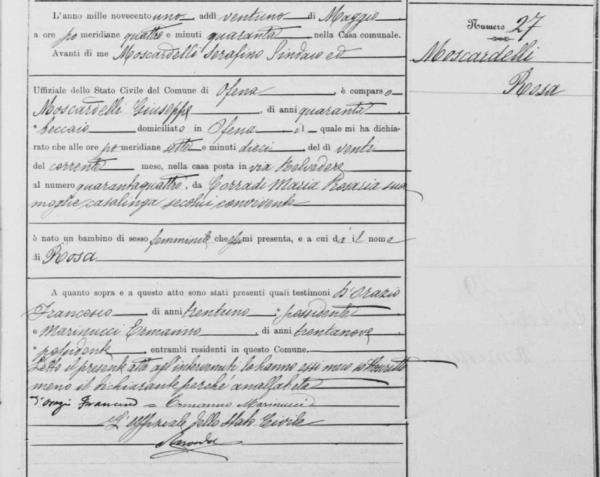 L'anno mille novecento uno, addì ventuno di Maggio
a ore pomeridiane quattro e minuti quaranta nella Casa comunale.
Avanti di me Moscardelli Serafino Sindaco ed
Uffiziale dello Stato Civile del Comune di Ofena, è comparso
Moscardelli Giuseppe, di anni quaranta
beccaio domiciliato in Ofena il quale mi ha dichia-
rato che alle ore pomeridiane sette e minuti dieci del dì venti
del corrente mese, nella casa posta in via Belvedere
al numero quarantaquattro, da Corradi Maria Rosaria sua
moglie casalinga seco lui convivente
è nato un bambino di sesso femminile che mi presenta, e a cui dà il nome
di Rosa
A quanto sopra e a questo atto sono stati presenti quali testimoni D'Orazio
Francesco di anni trentuno, possidente
e Marinucci Ermanno, di anni trentanove
possidente, entrambi residenti in questo Comune.
Letto il presente atto agl'intervenuti lo hanno essi meco sottoscritto
meno il dichiarante perchè analfabeta
Ermanno Marinucci
L'Uffiziale dello Stato Civile
Numero 27
Moscardelli
Rosa